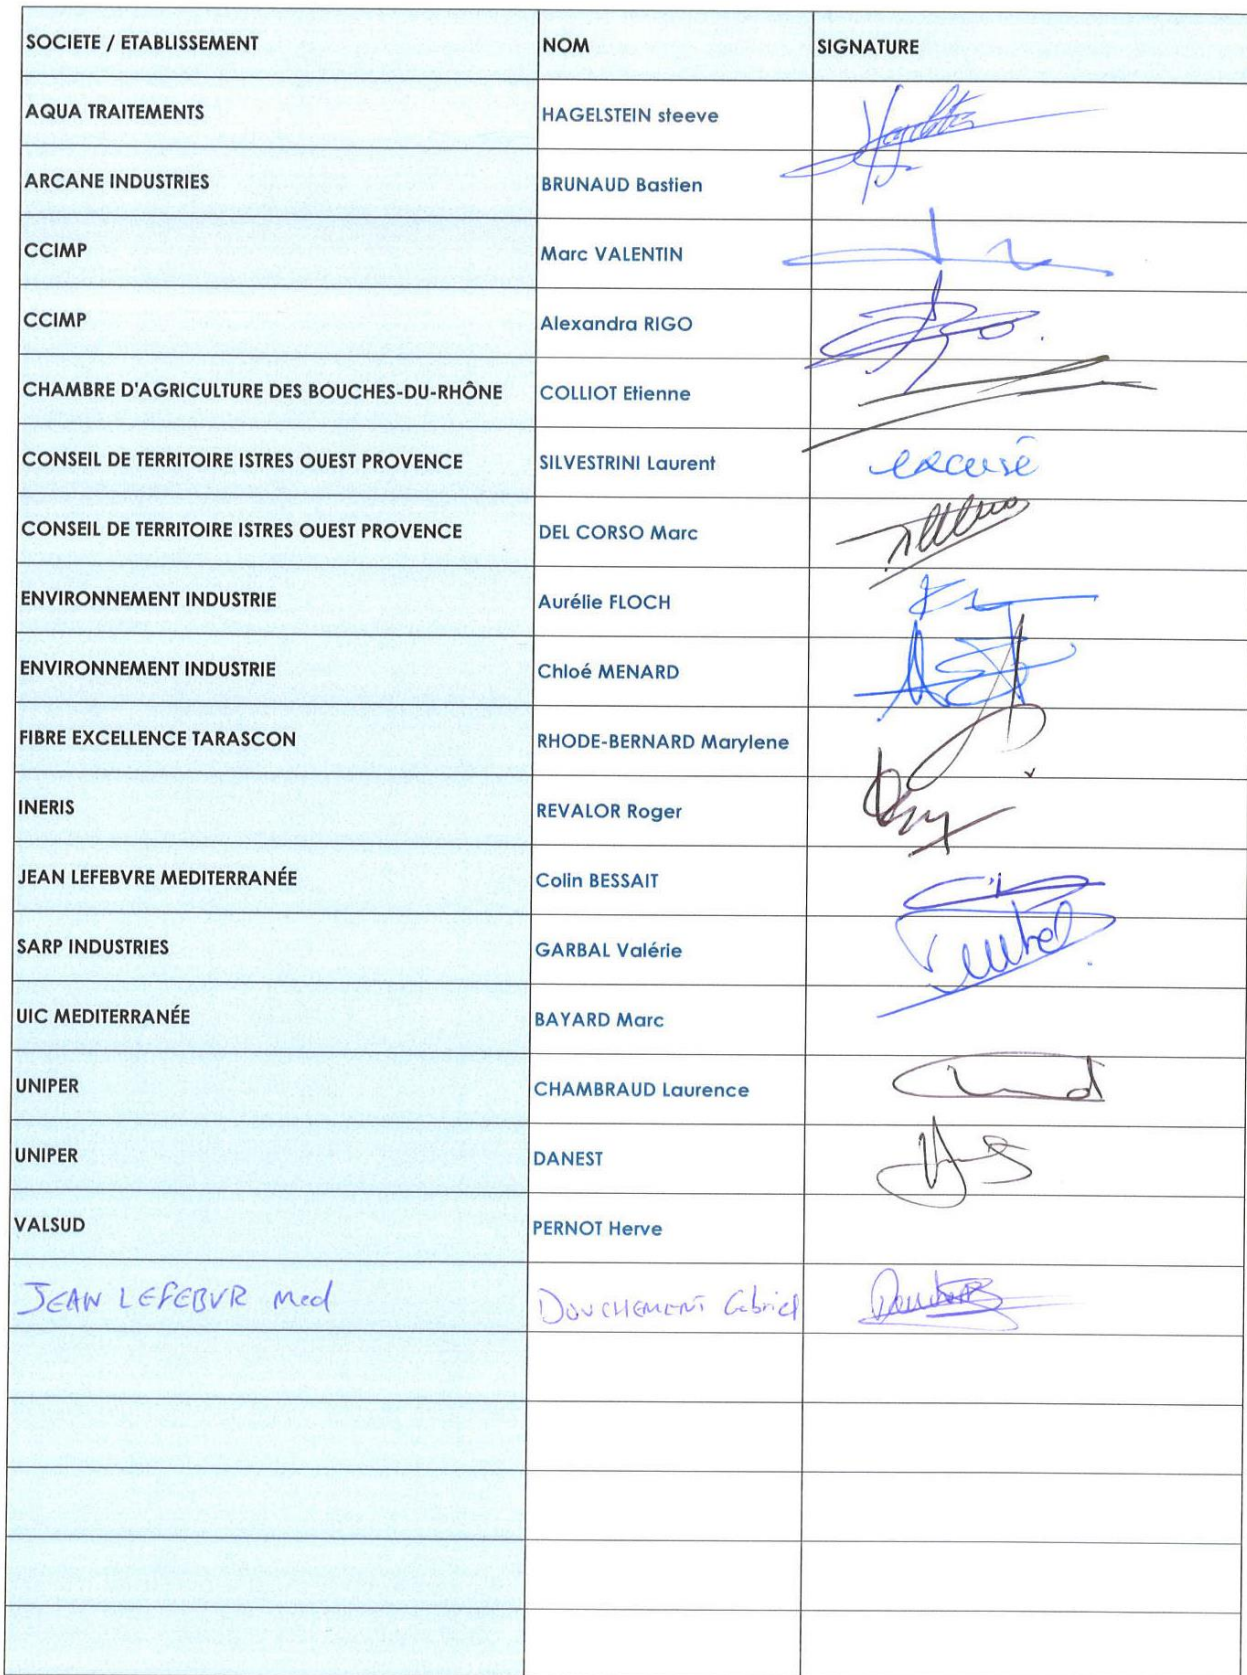 SOCIETE / ETABLISSEMENT NOM SIGNATURE
AQUA TRAITEMENTS HAGELSTEIN steeve
ARCANE INDUSTRIES BRUNAUD Bastien
CCIMP Marc VALENTIN
CCIMP Alexandra RIGO
CHAMBRE D'AGRICULTURE DES BOUCHES-DU-RHÔNE COLLIOT Etienne
CONSEIL DE TERRITOIRE ISTRES OUEST PROVENCE SILVESTRINI Laurent excusé
CONSEIL DE TERRITOIRE ISTRES OUEST PROVENCE DEL CORSO Marc
ENVIRONNEMENT INDUSTRIE Aurélie FLOCH
ENVIRONNEMENT INDUSTRIE Chloé MENARD
FIBRE EXCELLENCE TARASCON RHODE-BERNARD Marylene
INERIS REVALOR Roger
JEAN LEFEBVRE MEDITERRANÉE Colin BESSAIT
SARP INDUSTRIES GARBAL Valérie
UIC MEDITERRANÉE BAYARD Marc
UNIPER CHAMBRAUD Laurence
UNIPER DANEST
VALSUD PERNOT Herve
JEAN LEFEBVR Med DOUCHEMENT Gabriel